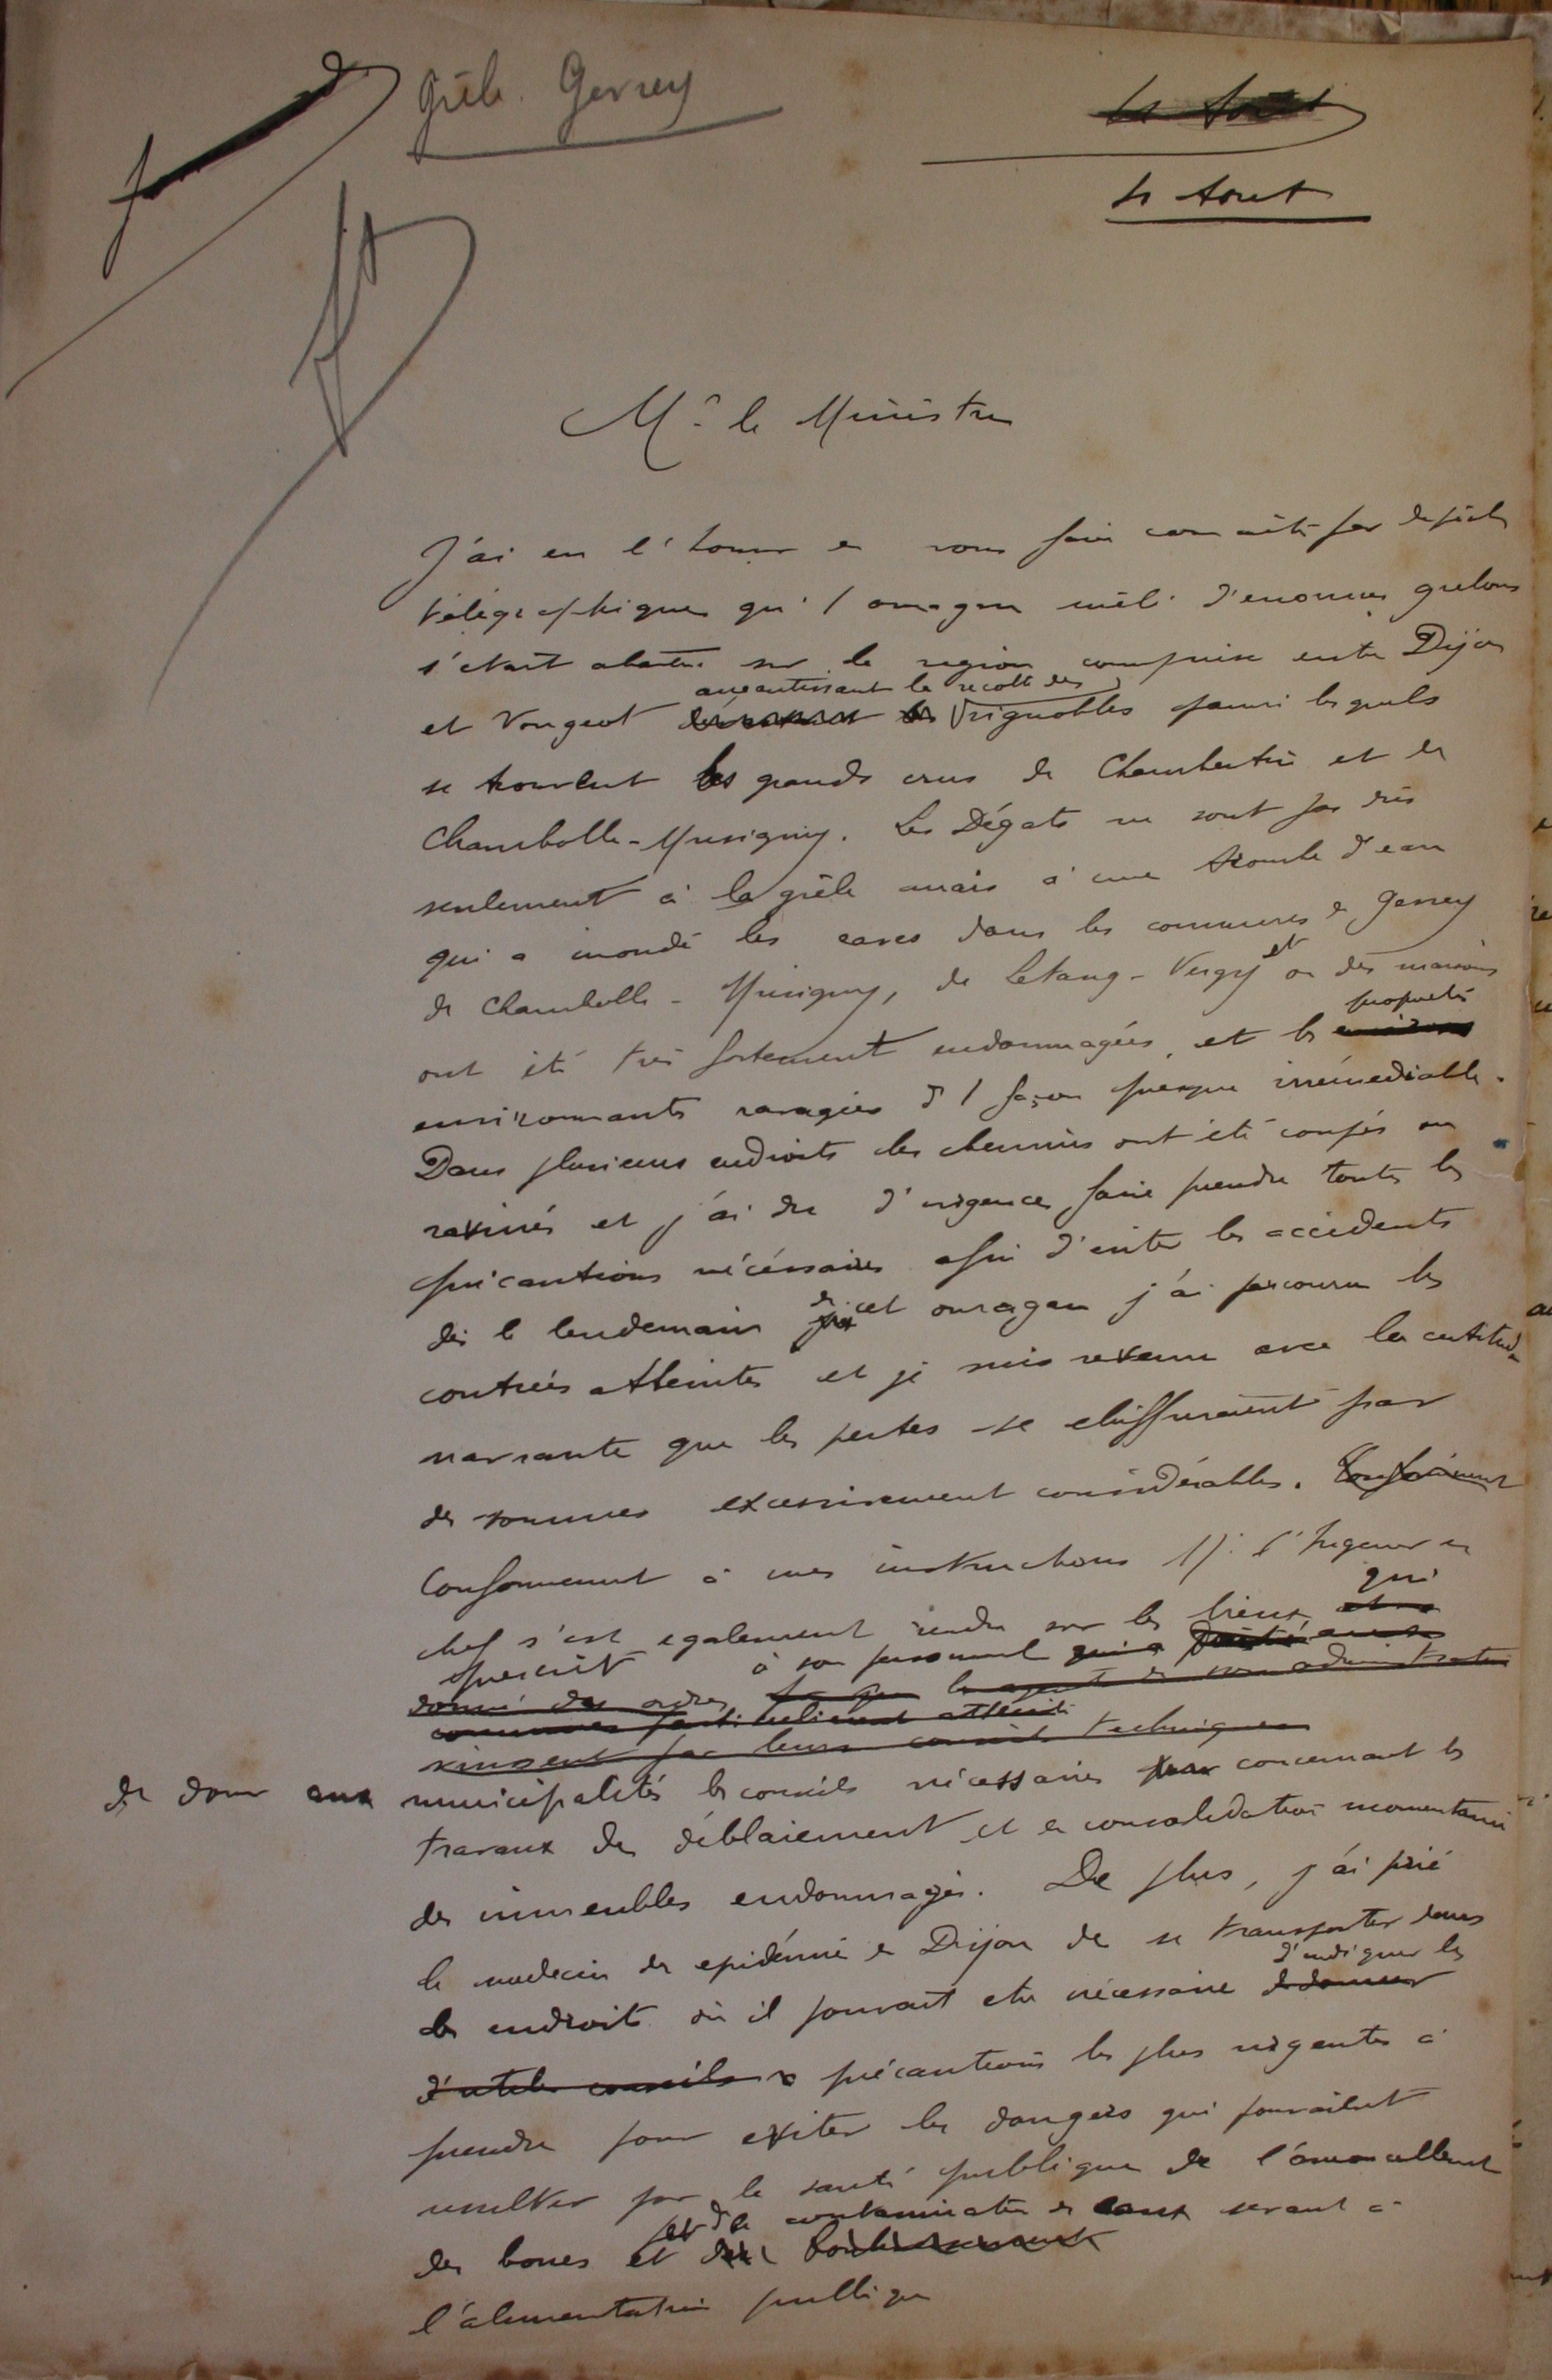 Grêle. Gevrey
4 Aout
4 Aout
Mr le Ministre
J'ai eu l'honneur de vous faire connaitre par depêche
télégraphique qu'1 ouragan mêlé d'enormes grelons
s'etait abattu sur la region comprise entre Dijon
aneantissant la recolte des
et Vougeot vignobles parmi lesquels
se trouvent les grands crus de Chambertin et de
Chambolle-Musigny. Les Dégats ne sont pas dûs
seulement à la grêle mais à une trombe d'eau
qui a inondé les caves dans les communes de Gevrey
de Chambolle-Musigny, de Letang-Vergy et où des maisons
propriétés
ont été très fortement endommagées, et les
environnants ravagées d'1 façon presque irrémediable.
Dans plusieurs endroits les chemins ont été coupés ou
ravinés et j'ai du d'urgence faire prendre toutes les
précautions nécéssaires afin d'eviter les accidents
dès le lendemain de cet ouragan j'ai parcouru les
contrées atteintes et je suis revenu avec la certitude
navrante que les pertes se chiffreraient par
des sommes excessivement considérables. Conformément
Conformement à mes instructions M. l'Ingenieur en
qui
chef s'est egalement rendu sur les lieux et a
prescrit à son personnel qui a
donné des ordres les agents de son administration
communes particulièrement atteintes
vinssent par leurs conseils techniques
de donner aux municipalités les conseils nécessaires pour concernant les
travaux de déblaiement et de consolidation momentanée
des immeubles endommagés. De plus, j'ai prié
le medecin des epidémies de Dijon de se transporter dans
d'indiquer les
les endroits où il pourrait etre nécessaire de donner
d'utiles conseils précautions les plus urgentes à
prendre pour eviter les dangers qui pourraient
resulter pour la santé publique de l'amoncellement
par la contamination des eaux servant à
des boues et
l'alimentation publique